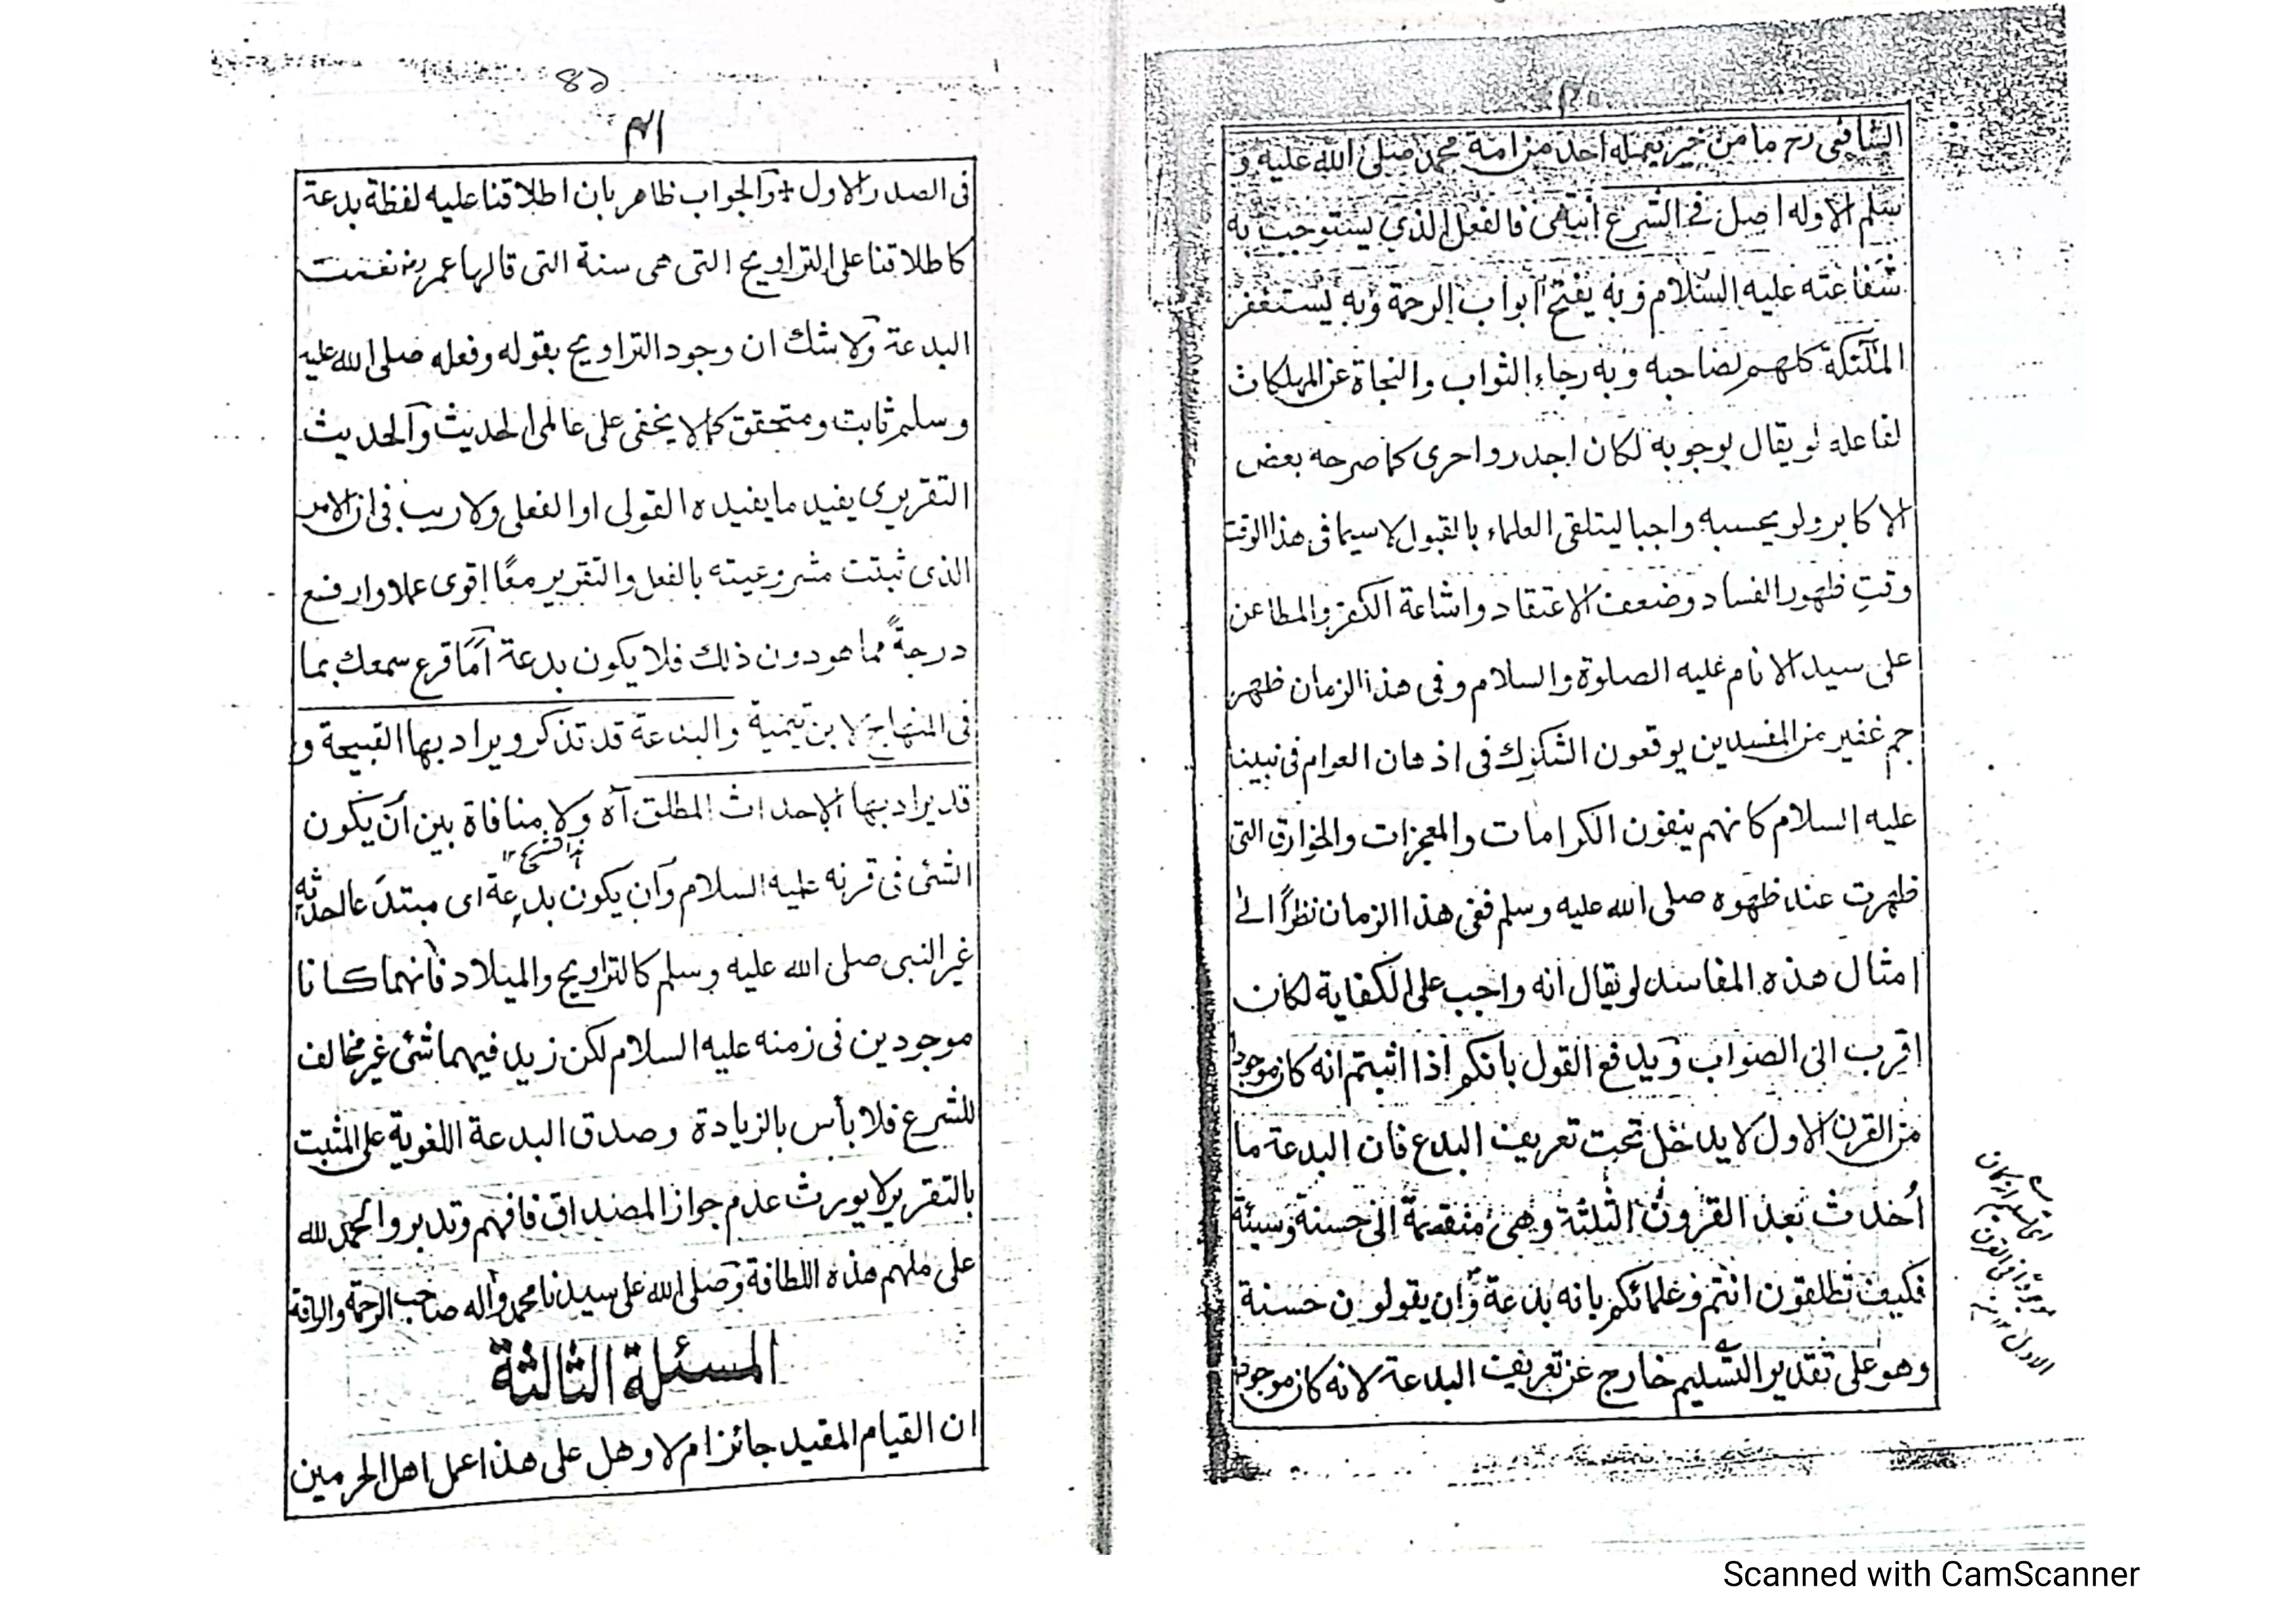 الشافعى رح ما من خير يعمله احد من امة محمد صلى الله عليه و
سلم الا وله اصل فى الشرع انتهى فالفعل الذي يستوجب به
شفاعته عليه السلام وبه يفتح ابواب الرحمة وبه يستغفر
الملئكة كلهم لصاحبه وبه رجاء الثواب والنجاة عن المهلكات
لفاعله لو يقال بوجوبه لكان اجدر واحرى كما صرحه بعض
الاكابر ولو يحسبه واجبا ليتلقى العلماء بالقبول لاسيما فى هذا الوقت
وقت ظهور الفساد وضعف الاعتقاد واشاعة الكفر والمطاعن
على سيد الانام عليه الصلوة والسلام وفى هذا الزمان ظهر
جم غفير من المفسدين يوقعون الشكوك فى اذهان العوام فى نبينا
عليه السلام كانهم ينفون الكرامات والمعجزات والخوارق التى
ظهرت عند ظهوره صلى الله عليه وسلم ففى هذا الزمان نظرًا الى
امثال هذه المفاسد لو يقال انه واجب على الكفاية لكان
اقرب الى الصواب ويدفع القول بانكم اذا اثبتم انه كان موجودا
من القرن الاول لا يدخل تحت تعريف البدع فان البدعة ما
اُحدث بعد القرون الثلثة وهى منقسمة الى حسنة وسيئة
فكيف تطلقون انتم وعلمائكم بانه بدعة وان يقولون حسنة
وهو على تقدير التسليم خارج عن تعريف البدعة لانه كان موجودا
٤١
فى الصدر الاول + والجواب ظاهر بان اطلاقنا عليه لفظة بدعة
كاطلاقنا على التراويح التى هى سنة التى قالها عمر رض نعمت
البدعة ولا شك ان وجود التراويح بقوله وفعله صلى الله عليه
وسلم ثابت ومتحقق كما لا يخفى على عالمى الحديث والحديث
التقريرى يفيد ما يفيده القولى او الفعلى ولا ريب فى ان الامر
الذى ثبتت مشروعيته بالفعل والتقرير معًا اقوى عملا وارفع
درجةً مما هو دون ذلك فلا يكون بدعة اَمَا قرع سمعك بما
فى المنهاج لابن تيمية والبدعة قد تذكر ويراد بها القبيحة و
قد يراد بها الاحداث المطلق آه ولا منافاة بين اَن يكون
الشئ فى قرنه عليه السلام واَن يكون بدعة اى مبتدَعا احدثه
غير النبى صلى الله عليه وسلم كالتراويح والميلاد فانهما كانا
موجودين فى زمنه عليه السلام لكن زيد فيهما شئ غير مخالف
للشرع فلا بأس بالزيادة وصدق البدعة اللغوية على المثبت
بالتقرير لا يورث عدم جواز المصداق فافهم وتدبر والحمد لله
على ملهم هذه اللطافة وصلى الله على سيدنا محمد واله صاحب الرحمة والرافة
المسئلة الثالثة
ان القيام المقيد جائز ام لا وهل على هذا عمل اهل الحرمين
Scanned with CamScanner